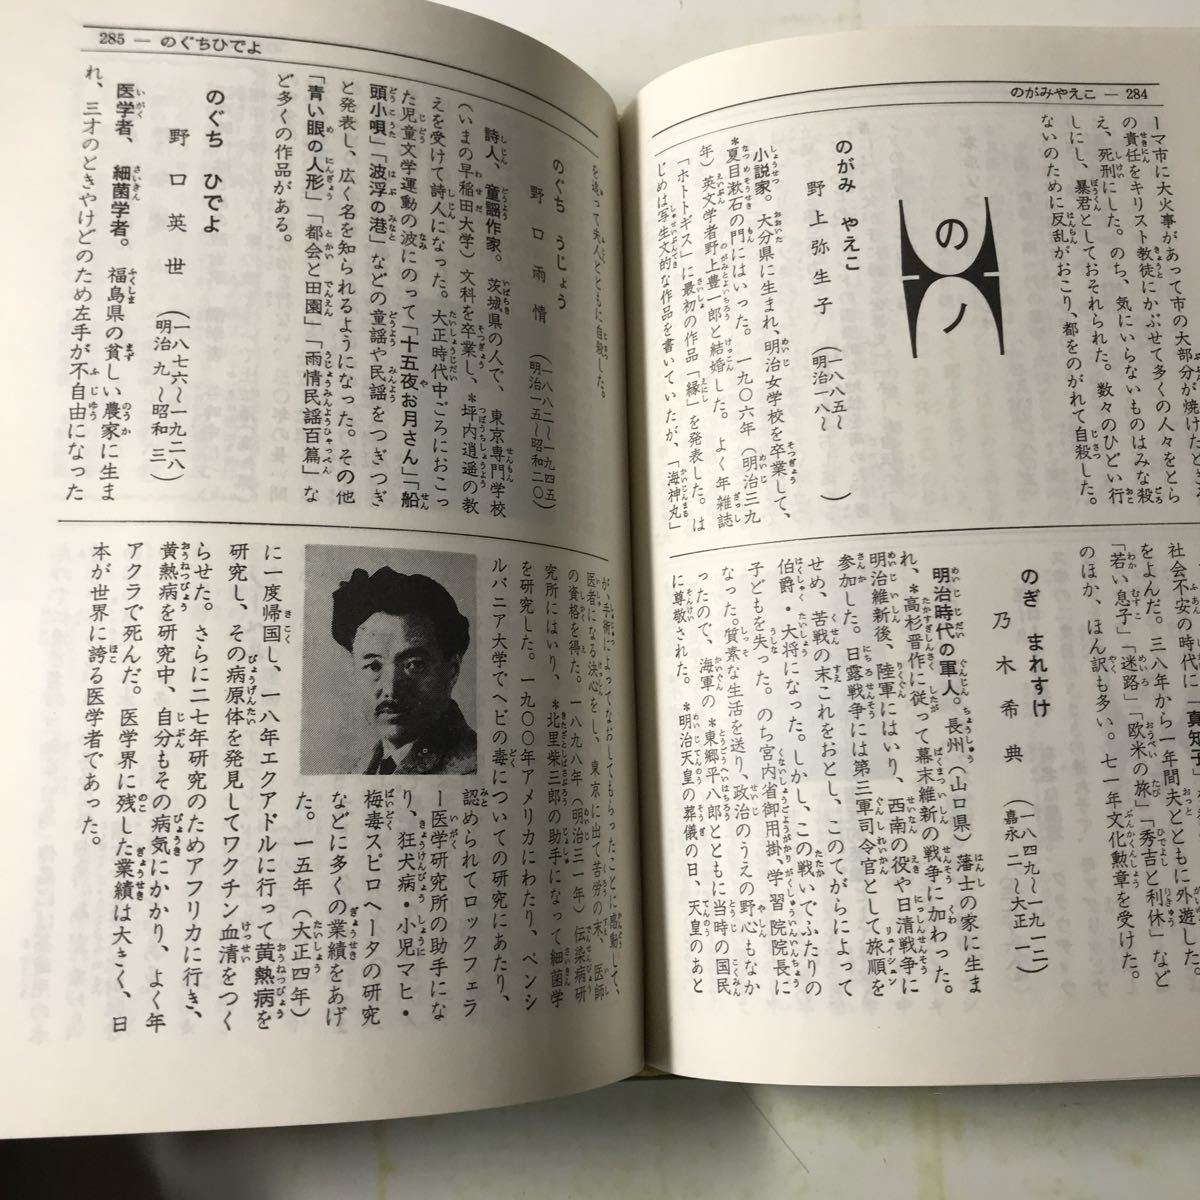 のがみやえこ — 284
ーマ市に大火事があって市の大部分が焼けた
の責任をキリスト教徒にかぶせて多くの人々をとら
え、死刑にした。のち、気にいらないものはみな殺
しにし、暴君としておそれられた。数々のひどい行
ないのために反乱がおこり、都をのがれて自殺した。
の
ノ
のがみ やえこ
野上弥生子（一八八五〜
明治一八〜）
小説家。大分県に生まれ、明治女学校を卒業して、
*夏目漱石の門にはいった。一九〇六年（明治三九
年）英文学者野上豊一郎と結婚した。よく年雑誌
「ホトトギス」に最初の作品「縁」を発表した。は
じめは写生文的な作品を書いていたが、「海神丸」
社会不安の時代に「真知子」
をよんだ。三八年から一年間夫とともに外遊した。
「若い息子」「迷路」「欧米の旅」「秀吉と利休」など
のほか、ほん訳も多い。七一年文化勲章を受けた。
のぎ まれすけ
乃木希典（一八四九〜一九一二
嘉永二〜大正一）
明治時代の軍人。長州（山口県）藩士の家に生ま
れ、*高杉晋作に従って幕末維新の戦争に加わった。
明治維新後、陸軍にはいり、西南の役や日清戦争に
参加した。日露戦争には第三軍司令官として旅順を
せめ、苦戦の末これをおとし、このてがらによって
伯爵・大将になった。しかし、この戦いでふたりの
子どもを失った。のち宮内省御用掛、学習院院長に
なった。質素な生活を送り、政治のうえの野心もなか
ったので、海軍の*東郷平八郎とともに当時の国民
に尊敬された。*明治天皇の葬儀の日、天皇のあと
285 — のぐちひでよ
を追って夫人とともに自殺した。
のぐち うじょう
野口雨情（一八八二〜一九四五
明治一五〜昭和二〇）
詩人、童謡作家。茨城県の人で、東京専門学校
（いまの早稲田大学）文科を卒業し、*坪内逍遥の教
えを受けて詩人になった。大正時代中ごろにおこっ
た児童文学運動の波にのって「十五夜お月さん」「船
頭小唄」「波浮の港」などの童謡や民謡をつぎつぎ
と発表し、広く名を知られるようになった。その他
「青い眼の人形」「都会と田園」「雨情民謡百篇」な
ど多くの作品がある。
のぐち ひでよ
野口英世（一八七六〜一九二八
明治九〜昭和三）
医学者、細菌学者。福島県の貧しい農家に生ま
れ、三才のときやけどのため左手が不自由になった
が、手術によってなおしてもらったことに感動して、
医者になる決心をし、東京に出て苦労の末、医師
の資格を得た。一八九八年（明治三一年）伝染病研
究所にはいり、*北里柴三郎の助手になって細菌学
を研究した。一九〇〇年アメリカにわたり、ペンシ
ルバニア大学でヘビの毒についての研究にあたり、
認められてロックフェラ
ー医学研究所の助手にな
り、狂犬病・小児マヒ・
梅毒スピロヘータの研究
などに多くの業績をあげ
た。一五年（大正四年）
に一度帰国し、一八年エクアドルに行って黄熱病を
研究し、その病原体を発見してワクチン血清をつく
らせた。さらに二七年研究のためアフリカに行き、
黄熱病を研究中、自分もその病気にかかり、よく年
アクラで死んだ。医学界に残した業績は大きく、日
本が世界に誇る医学者であった。